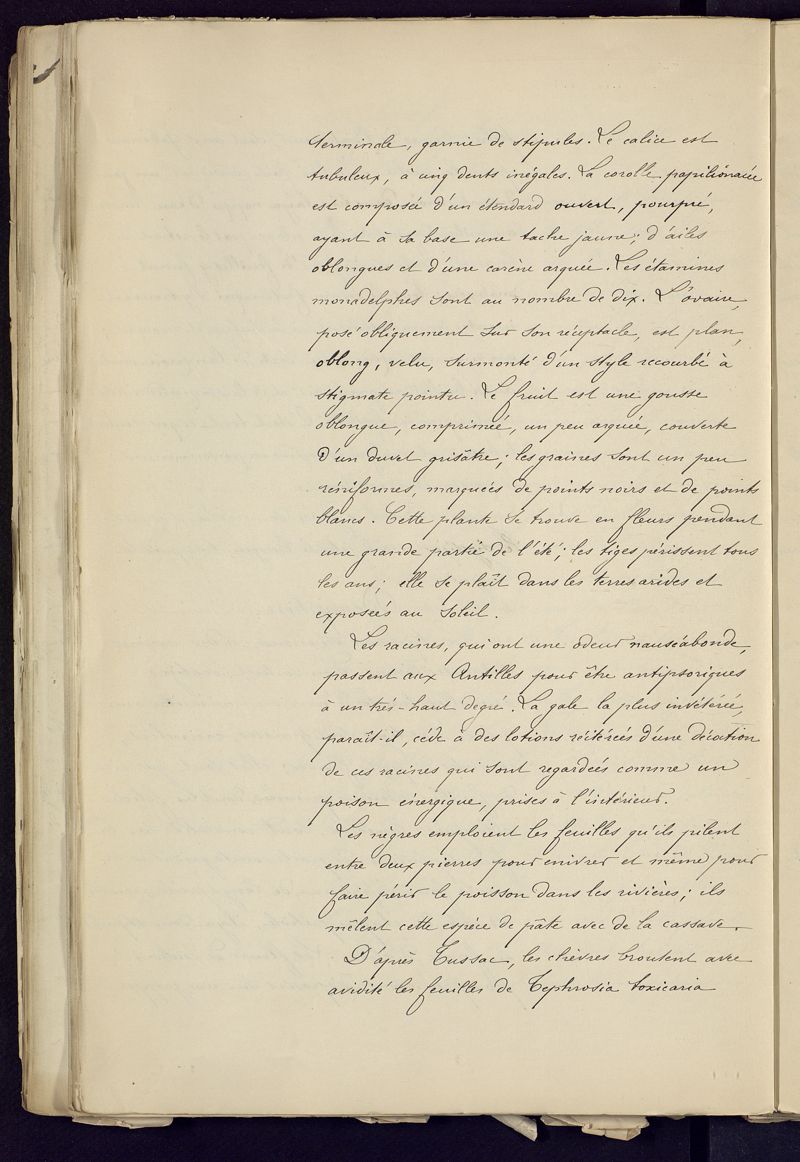 terminale, garnie de stipules. Le calice est
tubuleux, à cinq dents inégales. La corolle papilionacée
est composée d'un étendard ouvert, pourpré,
ayant à sa base une tache jaune; d'ailes
oblongues et d'une carène arquée. Les étamines
monadelphes sont au nombre de dix. L'ovaire,
posé obliquement sur son réceptacle, est plan,
oblong, velu, surmonté d'un style recourbé à
stigmate pointu. Le fruit est une gousse
oblongue, comprimée, un peu arquée, couverte
d'un duvet grisâtre; les graines sont un peu
réniformes, marquées de points noirs et de points
blancs. Cette plante se trouve en fleurs pendant
une grande partie de l'été; les tiges périssent tous
les ans; elle se plaît dans les terres arides et
exposées au soleil.
Les racines, qui ont une odeur nauséabonde,
passent aux Antilles pour être antipsoriques
à un très-haut degré. La gale la plus invétérée,
paraît-il, cède à des lotions réitérées d'une décoction
de ces racines qui sont regardées comme un
poison énergique, prises à l'intérieur.
Les nègres emploient les feuilles qu'ils pilent
entre deux pierres pour enivrer et même pour
faire périr le poisson dans les rivières; ils
mêlent cette espèce de pâte avec de la cassave.
D'après Tussac, les chèvres broutent avec
avidité les feuilles de Tephrosia toxicaria